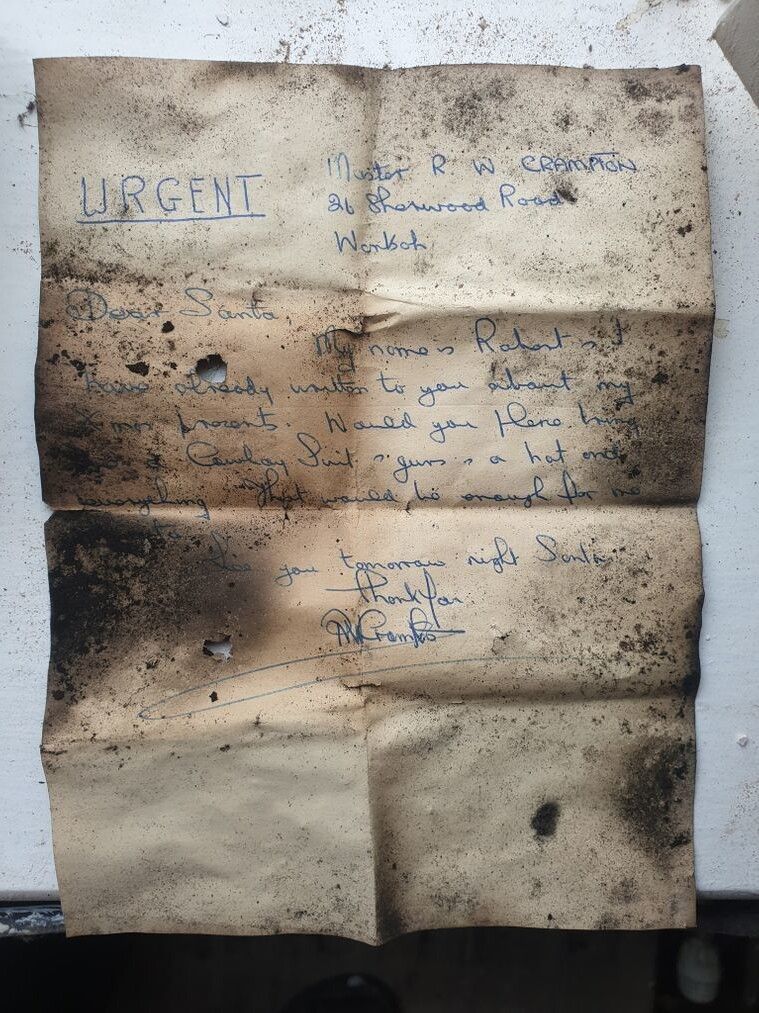 URGENT
Master R W CRAMPTON
26 Sherwood Road
Worksop
Dear Santa,
My name is Robert & I
have already written to you about my
Xmas presents. Would you please bring
me a Cowboy Suit & guns & a hat and
everything. That would be enough for me
See you tomorrow night Santa
Thank You
RW Crampton